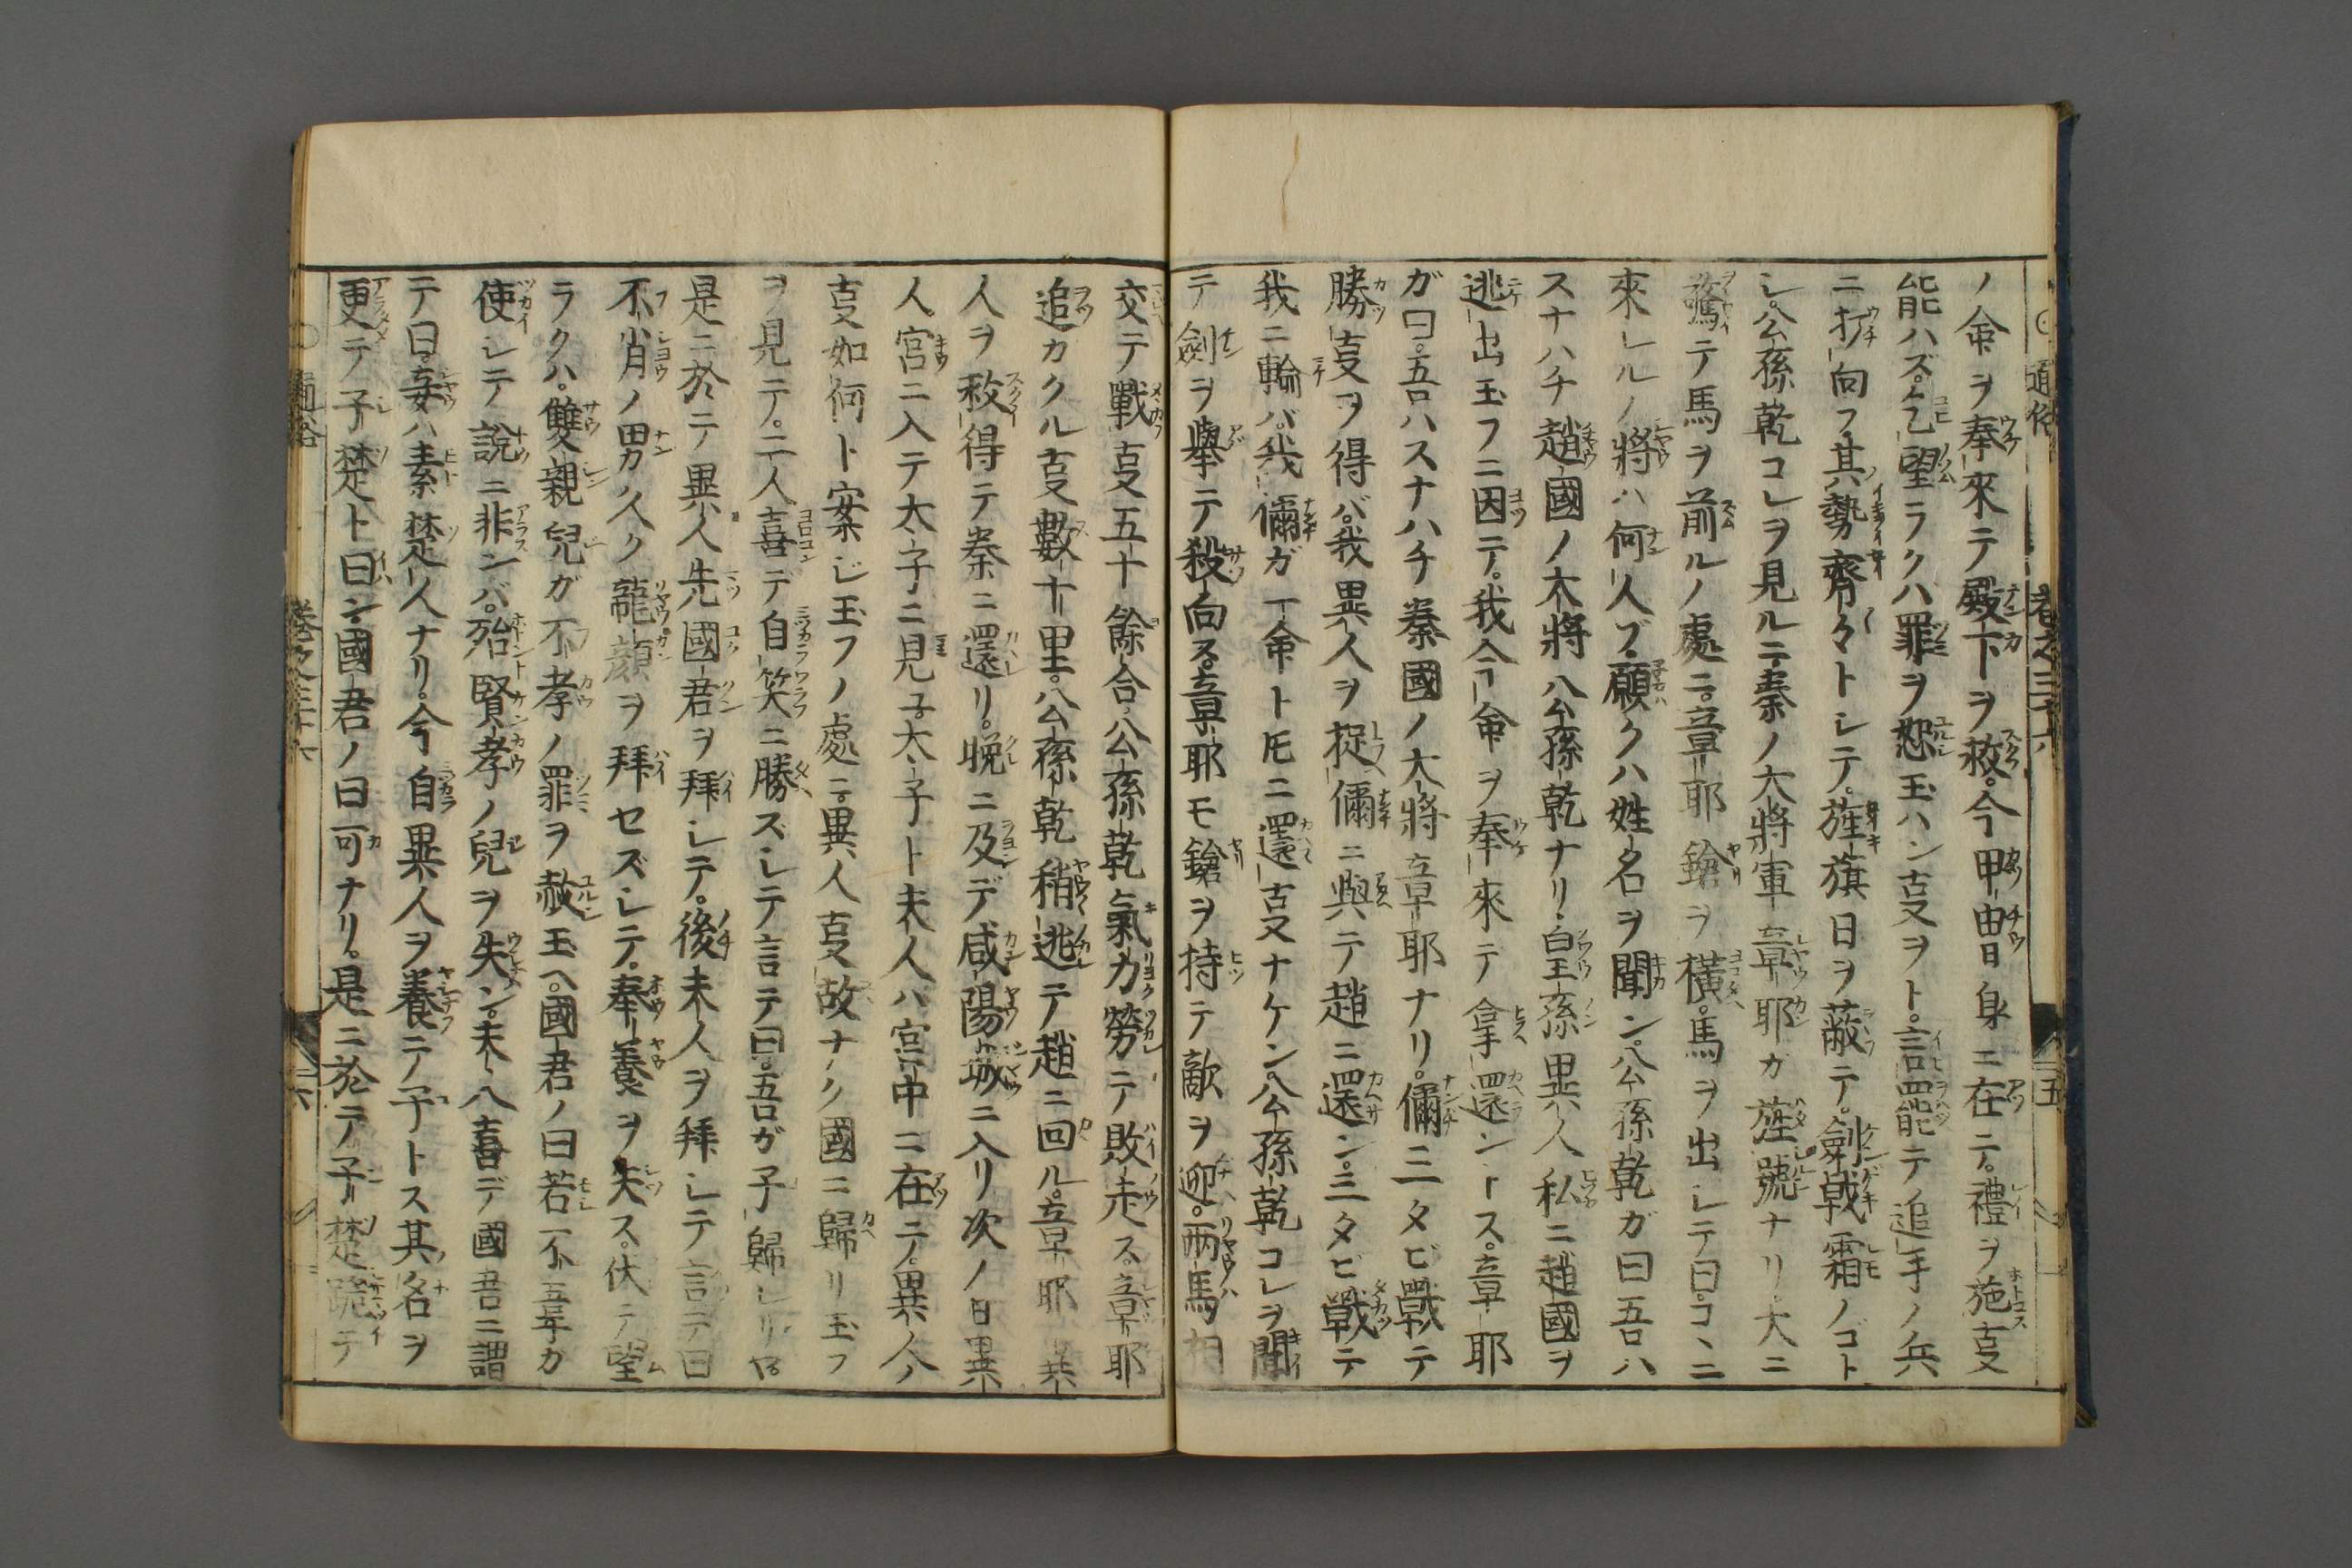 通俗 卷之三十六 五
ノ命ヲ奉來テ殿下ヲ救。今甲冑身ニ在テ。禮ヲ施叓
能ハズ。乞望ラクハ罪ヲ恕玉ハン叓ヲト。言罷テ追手ノ兵
ニ打向フ其勢齊々トシテ。旌旗日ヲ蔽テ。劍戟霜ノゴト
シ。公孫乾コレヲ見ルニ秦ノ大將軍章耶カ旌號ナリ。大ニ
驚テ馬ヲ前ルノ處ニ。章耶鎗ヲ橫。馬ヲ出シテ曰。コヽニ
來レルノ將ハ何人ブ。願クハ姓名ヲ聞ン。公孫乾ガ曰吾ハ
スナハチ趙國ノ大將公孫乾ナリ。皇孫異人私ニ趙國ヲ
逃出玉フニ因テ。我今命ヲ奉來テ拿還ントス。章耶
ガ曰。吾ハスナハチ秦國ノ大將章耶ナリ。儞三タビ戰テ
勝叓ヲ得バ。我異人ヲ捉儞ニ與テ趙ニ還ン。三タビ戰テ
我ニ輸バ。我儞ガ一命トモニ還叓ナケン。公孫乾コレヲ聞
テ劍ヲ擧テ殺向ス。章耶モ鎗ヲ持テ敵ヲ迎。兩馬相
交テ戰叓五十餘合。公孫乾氣力勞テ敗走ス。章耶
追カクル叓數十里。公孫乾稍逃テ趙ニ回ル。章耶異
人ヲ救得テ秦ニ還リ。晩ニ及デ咸陽城ニ入リ次ノ日異
人宮ニ入テ太子ニ見ユ。太子ト夫人ハ宮中ニ在テ。異人ノ
叓如何ト案ジ玉フノ處ニ。異人叓故ナク國ニ歸リ玉フ
ヲ見テ。二人喜デ自笑ニ勝ズシテ言テ曰。吾ガ子歸レリヤ
是ニ於テ異人先國君ヲ拜シテ。後夫人ヲ拜シテ言テ曰
不肖ノ男久ク龍顔ヲ拜セズシテ。奉養ヲ失ス。伏テ望
ラクハ。雙親兒ガ不孝ノ罪ヲ赦玉ヘ。國君ノ曰若不韋カ
使シテ說ニ非ンバ。殆賢孝ノ兒ヲ失ン。夫人喜デ國君ニ謂
テ曰。妾ハ素楚人ナリ。今自異人ヲ養テ子トス其名ヲ
更テ子楚ト曰ン。國君ノ曰可ナリ。是ニ於テ子楚跪テ
通俗 卷之三十六 六